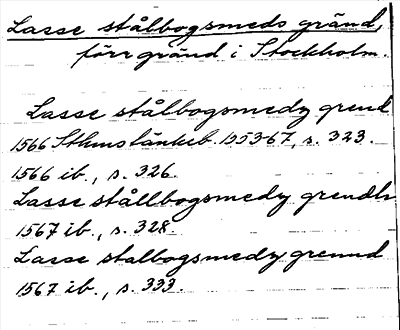 Lasse stålbogsmeds gränd,
förr gränd i Stockholm.
Lasse stålbogsmedz grend
1566 Sthms tänkeb. 1553-67, s. 323.
1566 ib., s. 326.
Lasse stållbogsmedz grendh
1567 ib., s. 328.
Lasse stalbogsmedz grennd
1567 ib., s. 333.